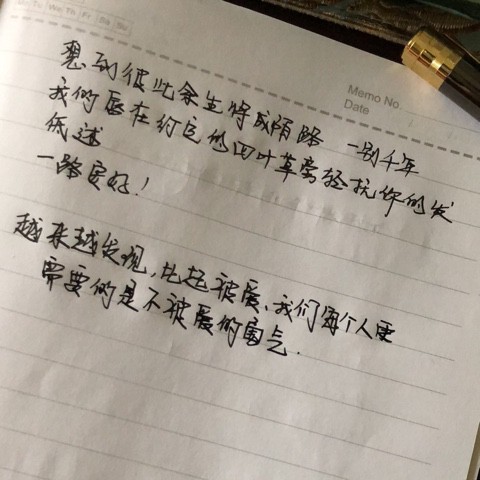 Mo Tu We Th Fr Sa Su
Memo No.
Date
想到彼此余生将成陌路 一别千年
我们后在约定的四叶草旁轻抚你的发
低述
一路安好!
越来越发现,比起被爱、我们每个人更
需要的是不被爱的勇气.